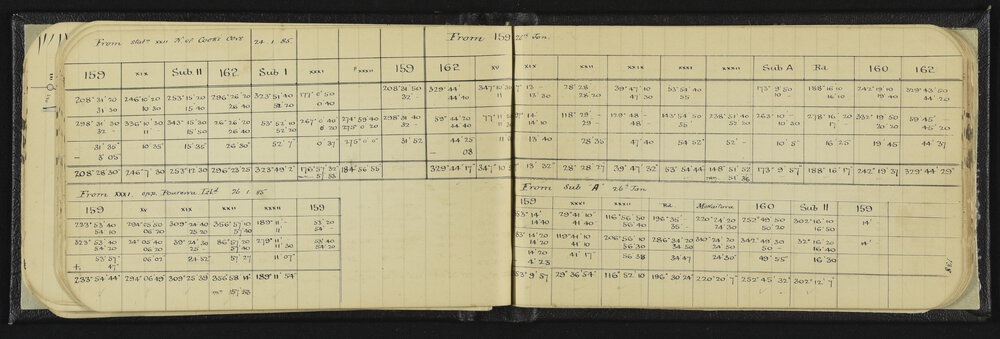 From Statn XXII N of Cook's Cove 24.1.85
159 XIX Sub II 162 Sub I XXXI XXXII 159
208° 31' 20 246° 10' 20 253° 15' 20 296° 26' 20 323° 51' 40 177° 0' 50 208° 31' 50
31 30 10 30 15 40 26 40 52' 20 0' 40 32' -
298° 31' 30 336° 10' 30 343° 15' 30 26° 26' 20 53° 52' 10 267° 0' 40 274° 59' 40 298° 31' 40
32 - 11 - 15' 50 26 40 52' 20 0' 20 275° 0' 20 32 -
31' 35" 10' 35" 15' 35" 26' 30" 52' 7" 0' 37 275° 0' 0" 31' 52
- 3' 05"
208° 28' 30 246° 7' 30 253° 12' 30 296° 23' 25 323° 49' 2" 176° 57' 32" 184° 56' 55
57' 33
From XXXI opp. Pourewa Isld 26.1.85
159 XV XIX XXII 189 159
233° 53' 40 294° 05' 50 309° 24' 40 356° 57' 10 189° 11' - 53' 20
54' 10 06' 20 25' 20 57' 40 11' - 54' -
323° 53' 40 24° 05' 40 39° 24' 30 86° 57' 20 279° 11' - 53' 40
54' 20 06' 20 25' - 57' 40 11' 30 54' 20
53' 57" 06' 02 24' 52" 57' 27 11' 07"
+ 47"
233° 54' 44" 294° 06' 49 309° 25' 39 356° 58' 14" 189° 11' 54"
57' 53
From 159 25th Jan.
162 XV XIX XXII XXXI XXXII Sub A Rd. 160 162
329° 44' 347° 10' 30 7° 13' - 28° 28' 39° 47' 10 53° 54' 40 173° 9' 50 188° 16' 10 242° 19' 10 329° 43' 50
44' 40 11' 13' 30 28' 20 47' 30 55 10' - 16' 10 19' 40 44' 20
59° 44' 20 77° 11' 14' 118° 29' - 129° 48' - 143° 54' 50 238° 51' 40 263° 10' - 278° 16' 20 332° 19' 50 59° 45'
44' 40 14' - 29' - 48' - 55' 52' 20 10' 30 17' 20' 20 45' 20
44' 25 13' 40 28' 35 47' 40 54' 52" 52' - 10' 5" 16' 25 19' 45 44' 37
- 08
329° 44' 17" 347° 10' 13' 32" 28° 28' 27 39° 47' 32 53° 54' 44 148° 51' 52 173° 9' 57 188° 16' 17 242° 19' 37 329° 44' 29"
51' 36
From Sub "A" 26th Jan
159 XXXI XXXII Rd. 160 Sub II 159
53° 14' 29° 41' 10 116° 56' 50 196° 35' - 220° 24' 20 252° 49' 50 302° 16' 10 14'
14' 40 41' 40 56' 40 35' - 24' 30 50' 20 16' 50
14' 20 119° 41' 10 206° 56' 10 286° 34' 20 310° 24' 20 342° 49' 30 32° 16' 20 14' -
14' 20 41' 10 56' 30 34' 50 24' 50 50' - 16' 40
14' 20 41' 17" 56' 38 34' 47 24' 30" 49' 55" 16' 30
4' 23
53° 9' 57 29° 36' 54" 116° 52' 10 196° 30' 24 220° 20' 7" 252° 45' 32" 302° 12' 7"